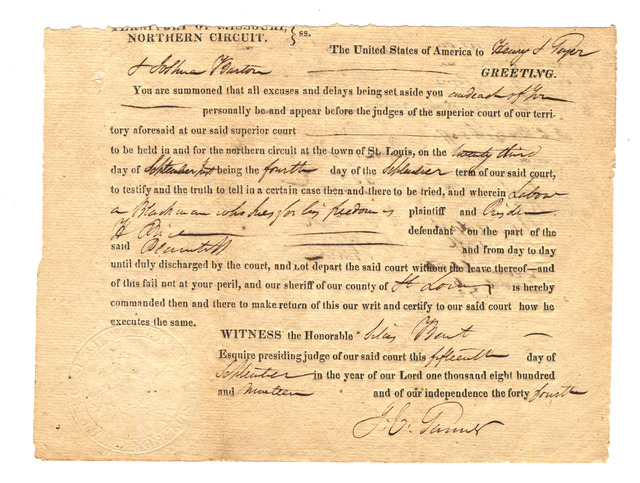 TERRITORY OF MISSOURI, } ss.
NORTHERN CIRCUIT.
The United States of America to Henry S Geyer
& Joshua Barton GREETING.
You are summoned that all excuses and delays being set aside you and each of you
personally be and appear before the judges of the superior court of our terri
tory aforesaid at our said superior court
to be held in and for the northern circuit at the town of St. Louis, on the twenty third
day of September Inst being the fourth day of the September term of our said court,
to testify and the truth to tell in a certain case then and there to be tried, and wherein
a Black man who sues for his freedom is plaintiff and
H Price defendant on the part of the
said Plaintiff and from day to day
until duly discharged by the court, and not depart the said court without the leave thereof—and
of this fail not at your peril, and our sheriff of our county of St Louis is hereby
commanded then and there to make return of this our writ and certify to our said court how he
executes the same.
WITNESS the Honorable Silas Bent
Esquire presiding judge of our said court this fifteenth day of
September in the year of our Lord one thousand eight hundred
and nineteen and of our independence the forty fourth